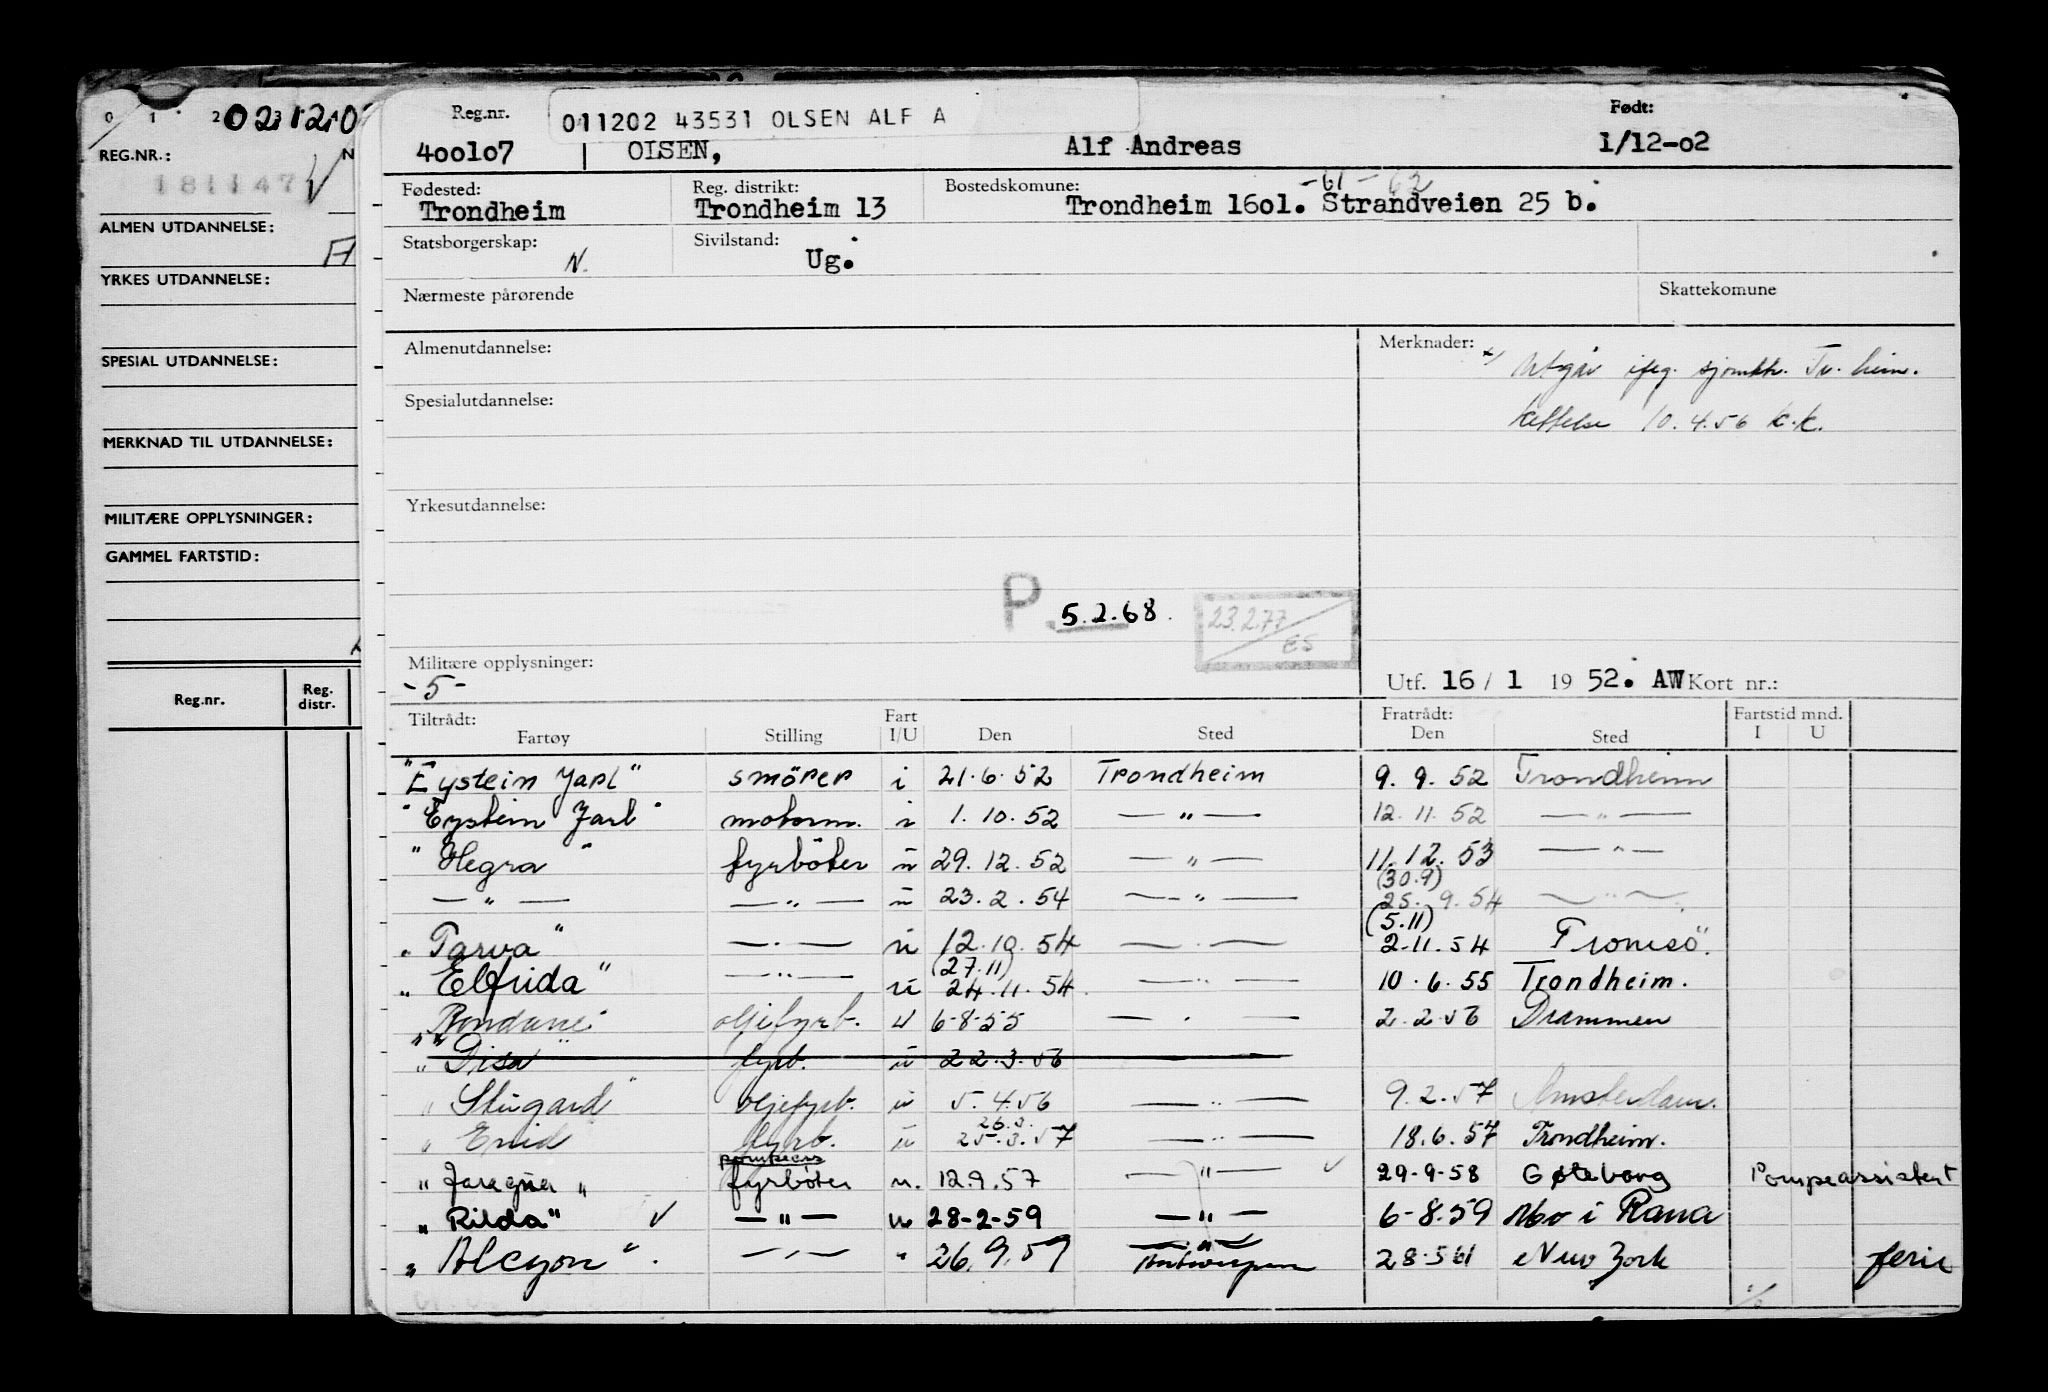 0 1 2 021202
REG.NR.: N
181147
ALMEN UTDANNELSE:
YRKES UTDANNELSE:
SPESIAL UTDANNELSE:
MERKNAD TIL UTDANNELSE:
MILITÆRE OPPLYSNINGER:
GAMMEL FARTSTID:
Reg.nr. Reg. distr.
Reg.nr. 011202 43531 OLSEN ALF A Født:
400107 OLSEN, Alf Andreas 1/12-02
Fødested: Reg. distrikt: Bostedskomune: -61-62
Trondheim Trondheim 13 Trondheim 1601. Strandveien 25 b.
Statsborgerskap: N. Sivilstand: Ug.
Nærmeste pårørende Skattekomune
Almenutdannelse: Merknader:
x) Utgår iføg. sjømktr. Tr. heim.
Spesialutdannelse:
10.4.56 K.K.
Yrkesutdannelse:
P 5.2.68. 23.2.77 ES
Militære opplysninger:
-5- Utf. 16/1 1952. AW Kort nr.:
Tiltrådt: Fartøy Stilling Fart I/U Den Sted Fratrådt: Den Sted Fartstid mnd. I U
"Eystein Jarl" smörer i 21.6.52 Trondheim 9.9.52 Trondheim
"Eystein Jarl" motorm. i 1.10.52 — " — 12.11.52 — " —
"Hegra" fyrböter u 29.12.52 — " — 11.12.53 — " —
(30.9)
— " — — " — u 23.2.54 — " — 25.9.54 — " —
(5.11)
"Tarva" — " — u 12.10.54 — " — 2-11.54 Tromsö.
(27.11)
"Elfrida" — " — u 24.11.54 — " — 10.6.55 Trondheim.
"Rondane" oljefyrb. u 6-8-55 — " — 2.2.56 Drammen
"Disa" fyrb. u 22.3.56
"Stugard" oljefyrb. u 5.4.56 — " — 9.2.57 Amsterdam.
26.3.
"Enid" fyrb. u 25.3.57 — " — 18.6.57 Trondheim.
"Jaraguer" fyrböter u. 12.9.57 — " — 29-9-58 Gøteborg Pompeassistent
"Rilda" — " — u 28-2-59 — " — 6-8.59 Mo i Rana
"Alcyon" — " — " 26.9.59 Antwerpen 28-5-61 New York ferie